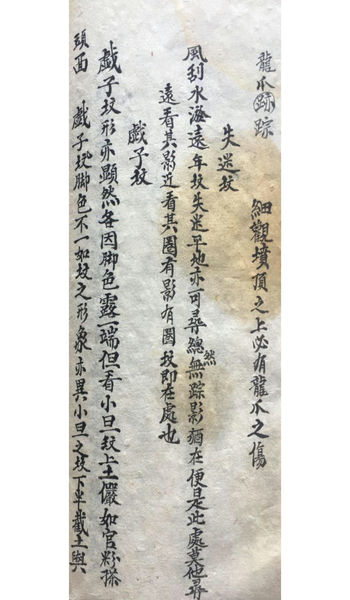 龍爪跡踪　細觀墳頂之上必有龍爪之傷
失迷坟
風刮水淹遠年坟失迷平地亦可尋總然無踪影猶在便是此處莫他尋
遠看其影近看其圈有影有圈坟即在處也
戲子坟
戲子坟形亦顯然各因脚色露一端但看小旦坟上土儼如官粉搽
頭面　戲子坟脚色不一如坟之形象亦異小旦之坟下半截土與